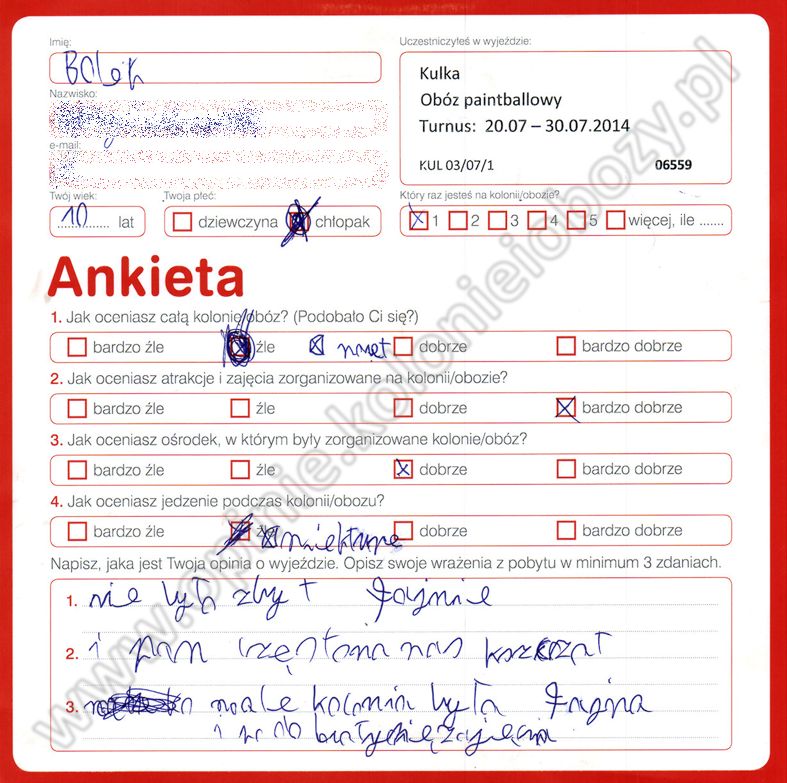 Imię:
Uczestniczyłeś w wyjeździe:
Bolek
Kulka
Obóz paintballowy
Turnus: 20.07 – 30.07.2014
KUL 03/07/1 06559
Nazwisko:
e-mail:
Twój wiek: Twoja płeć: Który raz jesteś na kolonii/obozie?
10 lat dziewczyna chłopak 1 2 3 4 5 więcej, ile .......
Ankieta
1. Jak oceniasz całą kolonię/obóz? (Podobało Ci się?)
bardzo źle źle dobrze bardzo dobrze
2. Jak oceniasz atrakcje i zajęcia zorganizowane na kolonii/obozie?
bardzo źle źle dobrze bardzo dobrze
3. Jak oceniasz ośrodek, w którym były zorganizowane kolonie/obóz?
bardzo źle źle dobrze bardzo dobrze
4. Jak oceniasz jedzenie podczas kolonii/obozu?
bardzo źle dobrze bardzo dobrze
Napisz, jaka jest Twoja opinia o wyjeździe. Opisz swoje wrażenia z pobytu w minimum 3 zdaniach.
1. nie było zbyt fajnie
2. i pan nas
3. ale kolonia była fajna
i
www.opinie.kolonieiobozy.pl